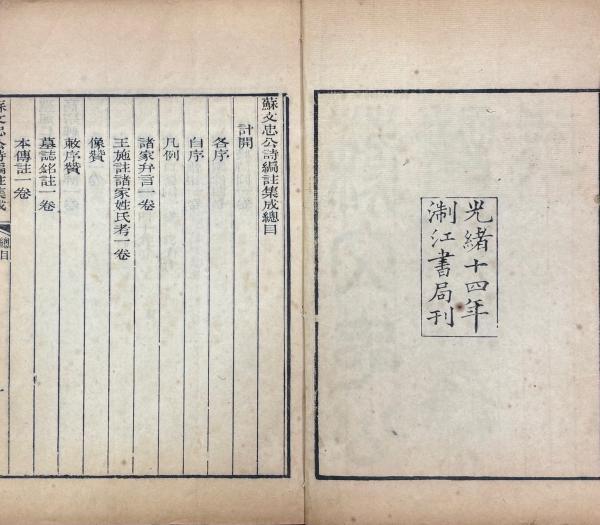 光緒十四年
淛江書局刊
蘇文忠公詩編註集成總目
計開
各序
自序
凡例
諸家弁言一卷
王施註諸家姓氏考一卷
像贊
敕序贊
墓誌銘註一卷
本傳註一卷
蘇文忠公詩編註集成
總目
一